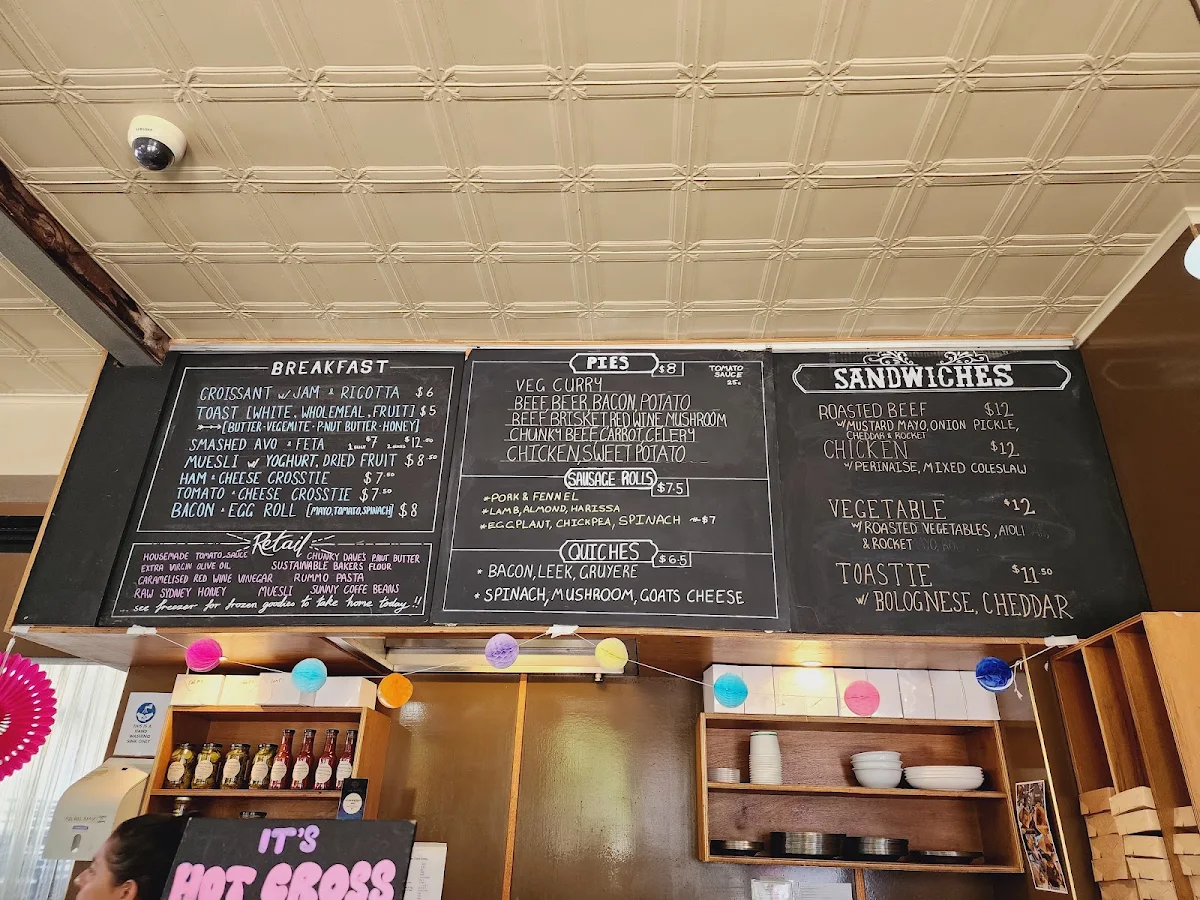 BREAKFAST
CROISSANT w/ JAM & RICOTTA $6
TOAST [WHITE, WHOLEMEAL, FRUIT] $5
[BUTTER·VEGEMITE·P.NUT BUTTER·HONEY]
SMASHED AVO & FETA $7 $12
MUESLI w/ YOGHURT, DRIED FRUIT $8.50
HAM & CHEESE CROSSTIE $7.50
TOMATO & CHEESE CROSSTIE $7.50
BACON & EGG ROLL [MAYO, TOMATO, SPINACH] $8
Retail
HOUSEMADE TOMATO SAUCE CHUNKY DAVE'S P.NUT BUTTER
EXTRA VIRGIN OLIVE OIL SUSTAINABLE BAKERS FLOUR
CARAMELISED RED WINE VINEGAR RUMMO PASTA
RAW SYDNEY HONEY MUESLI SUNNY COFFE BEANS
see freezer for frozen goodies to take home today!!
PIES $8
TOMATO SAUCE 25c
VEG CURRY
BEEF BEER, BACON, POTATO
BEEF BRISKET RED WINE MUSHROOM
CHUNKY BEEF, CARROT, CELERY
CHICKEN, SWEET POTATO
SAUSAGE ROLLS $7.5
*PORK & FENNEL
*LAMB, ALMOND, HARISSA
*EGGPLANT, CHICKPEA, SPINACH $7
QUICHES $6.5
* BACON, LEEK, GRUYERE
* SPINACH, MUSHROOM, GOATS CHEESE
SANDWICHES
ROASTED BEEF $12
w/ MUSTARD MAYO, ONION PICKLE,
CHEDDAR & ROCKET
CHICKEN $12
w/ PERINAISE, MIXED COLESLAW
VEGETABLE $12
w/ ROASTED VEGETABLES, AIOLI
& ROCKET
TOASTIE $11.50
w/ BOLOGNESE, CHEDDAR
THIS IS A
HAND
WASHING
SINK ONLY
IT'S
HOT CROSS